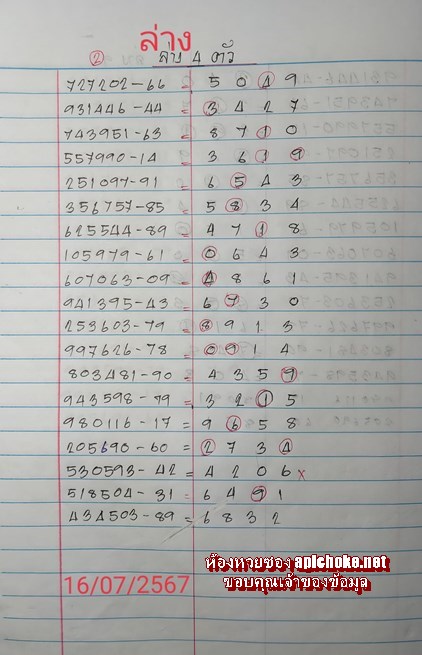 ล่าง
② ลบ 4 ตัว
727202-66 = 5 0 4 9
931446-44 = 3 4 2 7
743951-63 = 8 7 1 0
557990-14 = 3 6 1 9
251097-91 = 6 5 4 3
356757-85 = 5 8 3 4
625544-89 = 4 7 1 8
105979-61 = 0 6 4 3
607063-09 = 4 8 6 1
941395-43 = 6 7 3 0
253603-79 = 8 9 1 3
997626-78 = 0 9 1 4
803481-90 = 4 3 5 9
943598-79 = 3 2 1 5
980116-17 = 9 6 5 8
205690-60 = 2 7 3 4
530593-42 = 4 2 0 6 x
518504-31 = 6 4 9 1
434503-89 = 6 8 3 2
ห้องหวยซอง apichoke.net
16/07/2567 ขอบคุณเจ้าของข้อมูล